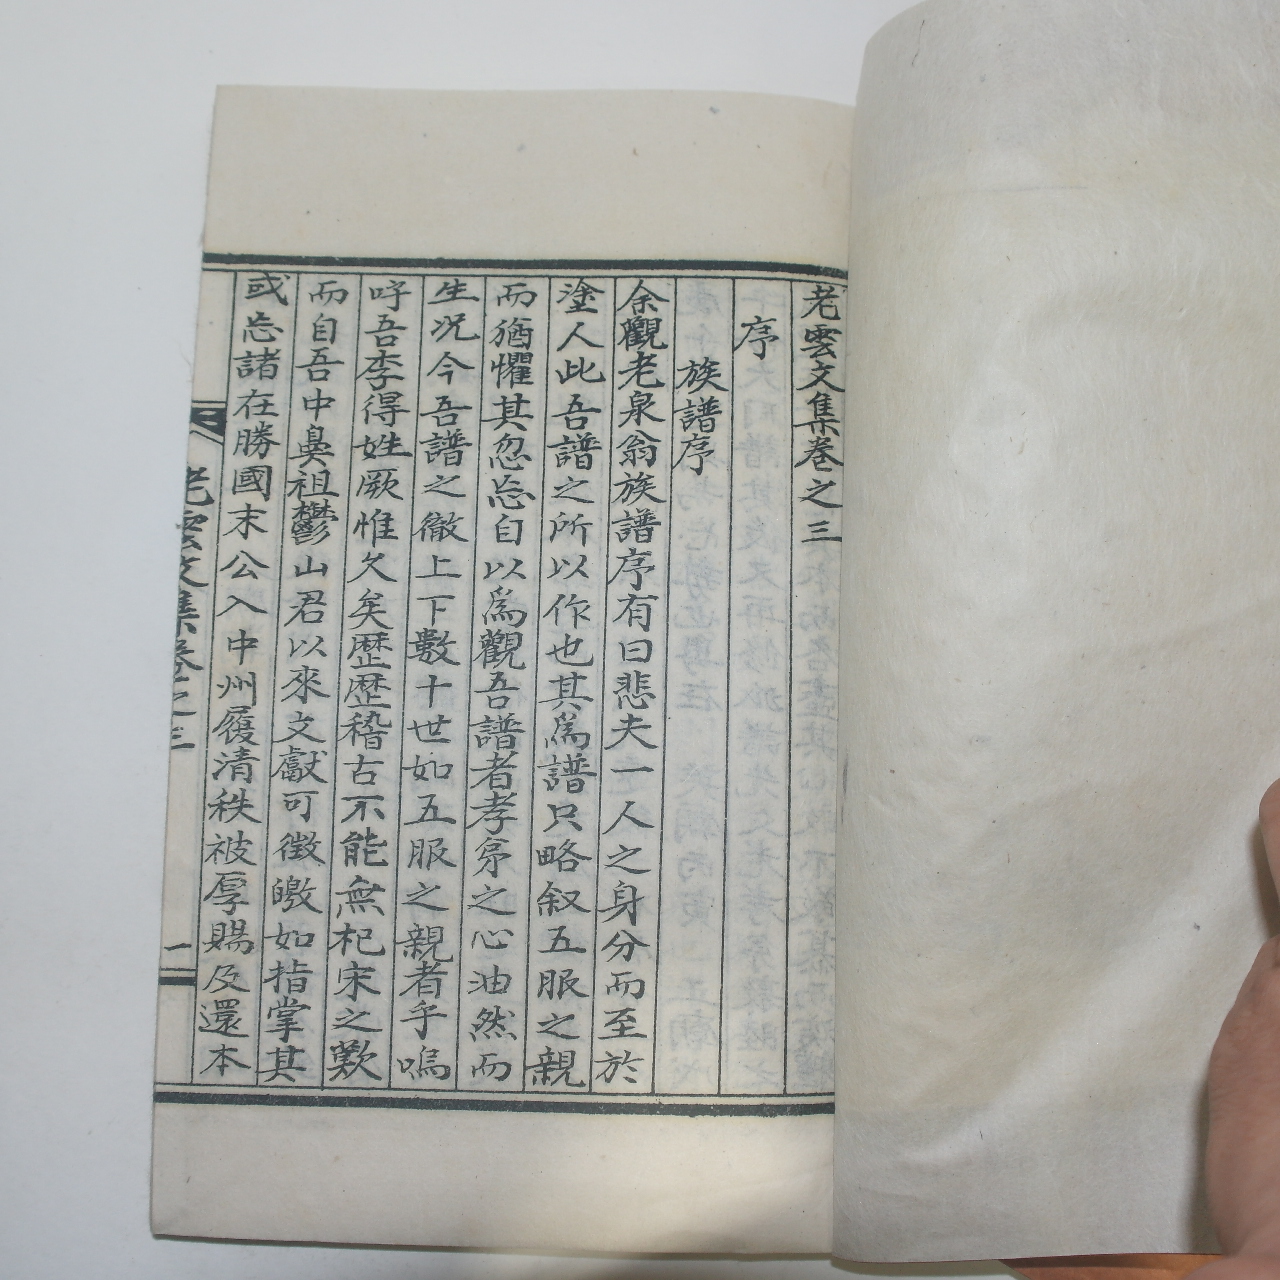 老雲文集卷之三
序
族譜序
余觀老泉翁族譜序有曰悲夫一人之身分而至於
塗人此吾譜之所以作也其爲譜只略叙五服之親
而猶懼其忽忘自以爲觀吾譜者孝弟之心油然而
生况今吾譜之徹上下數十世如五服之親者乎嗚
呼吾李得姓厥惟久矣歷歷稽古不能無杞宋之歎
而自吾中鼻祖鬱山君以來文獻可徵皦如指掌其
或忘諸在勝國末公入中州履清秩被厚賜及還本
老雲文集卷之三
一